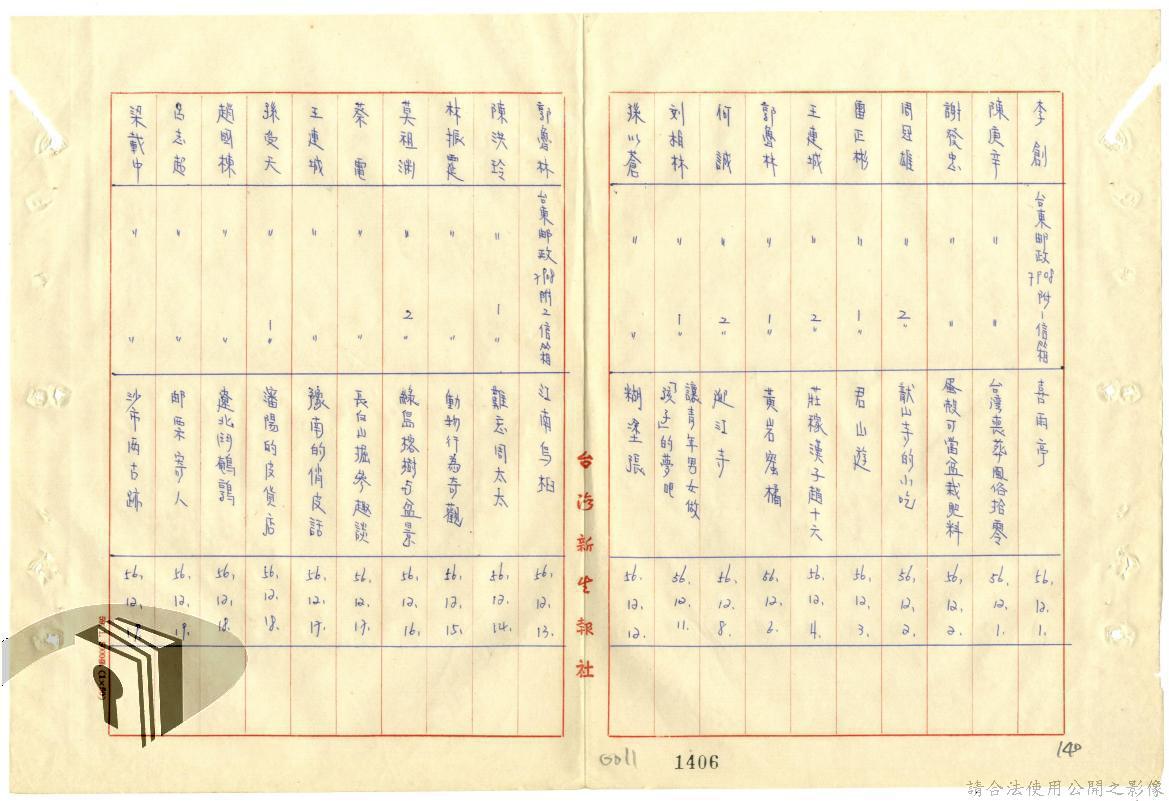 李創 台東邮政7908附1信箱 喜雨亭 56.12.1.
陳庚辛 〃 〃 台灣喪葬風俗拾零 56.12.1.
謝發忠 〃 〃 蛋殼可當盆栽肥料 56.12.2.
周冠雄 〃 2〃 獻山寺的小吃 56.12.2.
雷正彬 〃 1〃 君山遊 56.12.3.
王連城 〃 2〃 莊稼漢子趙十六 56.12.4.
郭魯林 〃 1〃 黃岩蜜橘 56.12.6.
何誠 〃 2〃 迎江寺 56.12.8.
刘相林 〃 1〃 讓青年男女做「孩子」的夢吧 56.12.11.
孫以蒼 〃 〃 糊塗張 56.12.12.
台灣新生報社
郭魯林 台東邮政7908附2信箱 江南烏桕 56.12.13.
陳洪玲 〃 1〃 難忘周太太 56.12.14.
林振霆 〃 〃 動物行為奇觀 56.12.15.
莫祖渊 〃 2〃 綠島榕樹与盆景 56.12.16.
蔡電 〃 〃 長白山掘參趣談 56.12.17.
王連城 〃 〃 豫南的俏皮話 56.12.17.
孫受天 〃 1〃 瀋陽的皮貨店 56.12.18.
趙國棟 〃 〃 遼北鬥鵪鶉 56.12.18.
呂志超 〃 〃 邮票寄人 56.12.19.
梁載中 〃 〃 沙市兩古跡 56.12.19.
G011
1406
140
請合法使用公開之影像